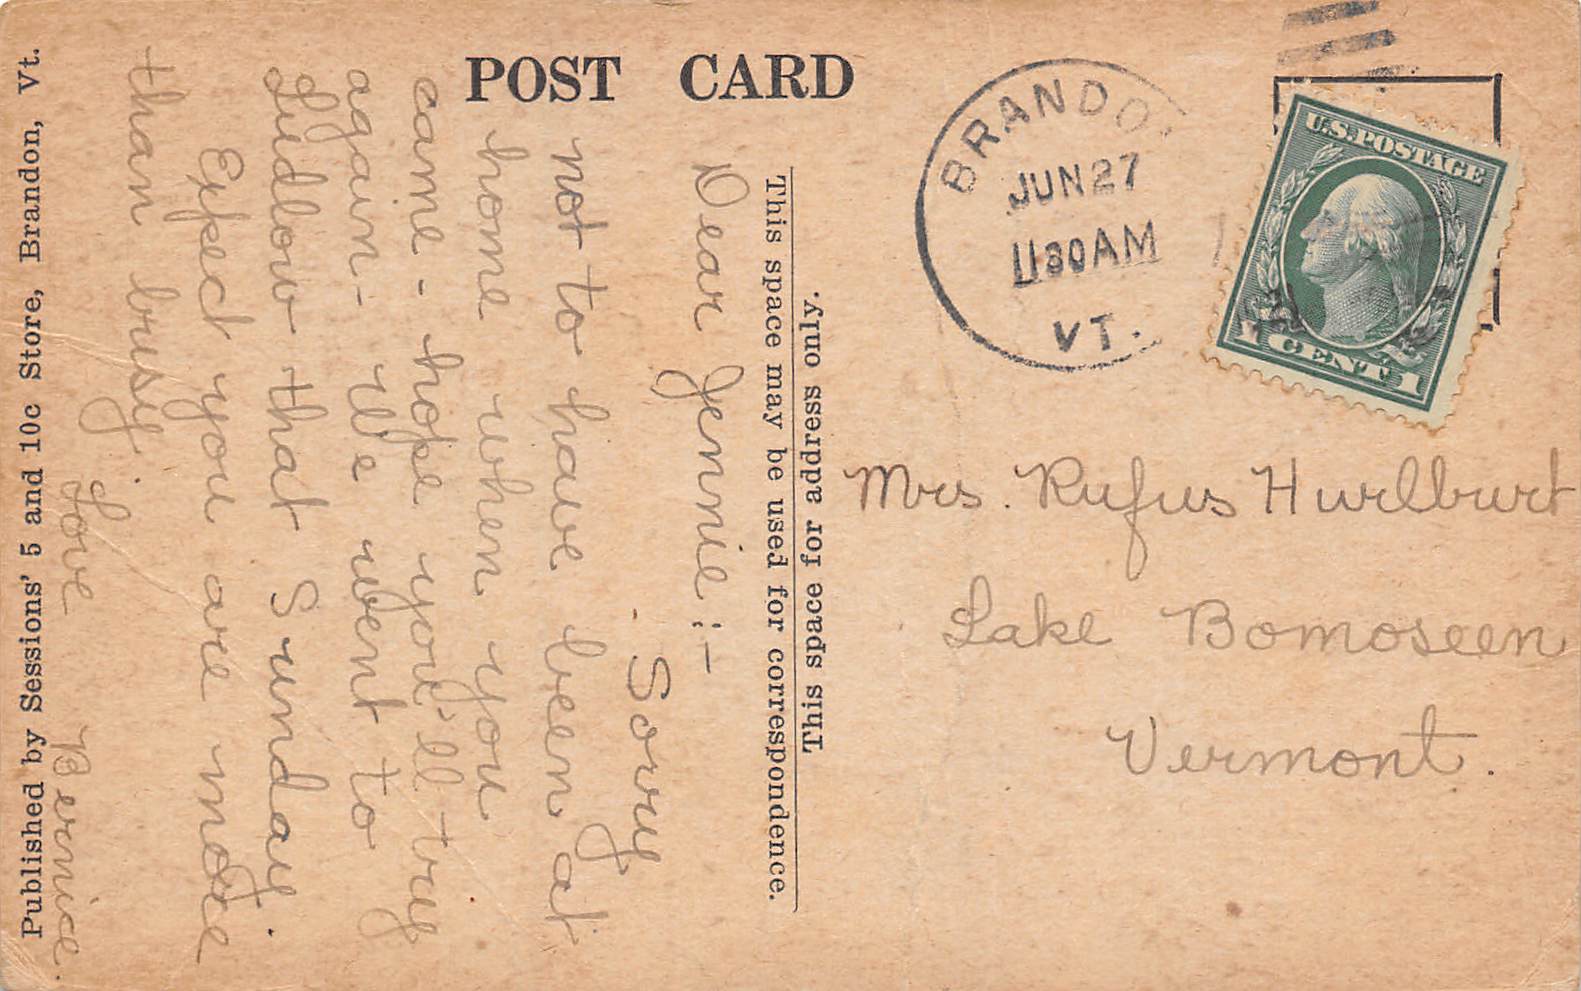 POST CARD
BRANDO
JUN 27
1130 AM
VT.
U.S. POSTAGE
1 CENT 1
This space may be used for correspondence.
This space for address only.
Dear Jennie:-
Sorry
not to have been at
home when you
came - hope you'll try
again - We went to
Ludlow that Sunday.
Expect you are more
than busy.
Love Bernice.
Published by Sessions' 5 and 10c Store, Brandon, Vt.
Mrs. Rufus Hurlburt
Lake Bomoseen
Vermont.